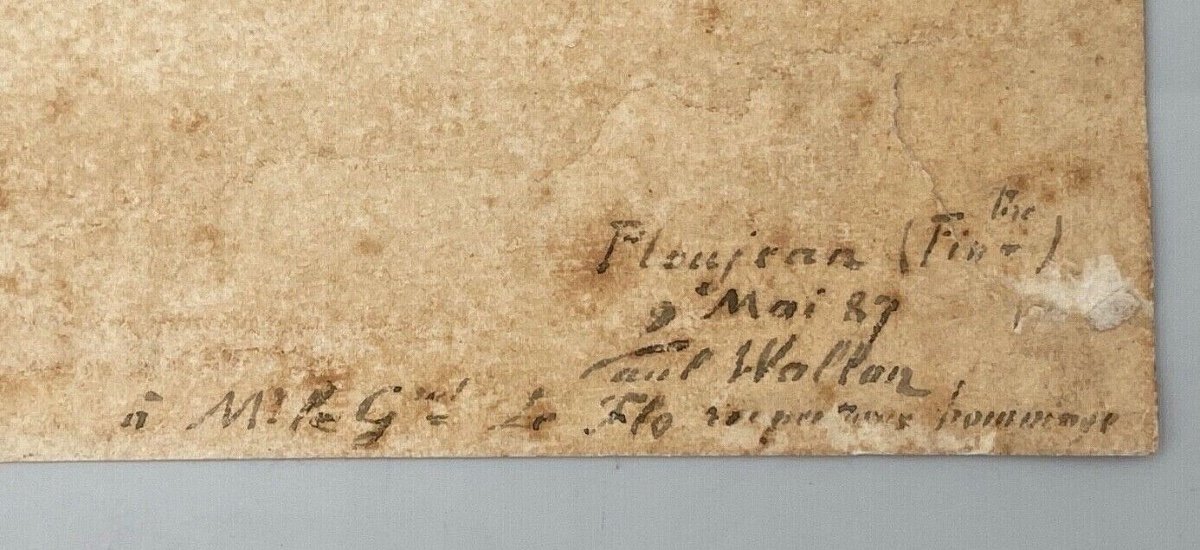 Ploujean (Fin^tère)
9^e Mai 87
Paul Wallan
à M^r le G^ral Le Flo respectueux hommage